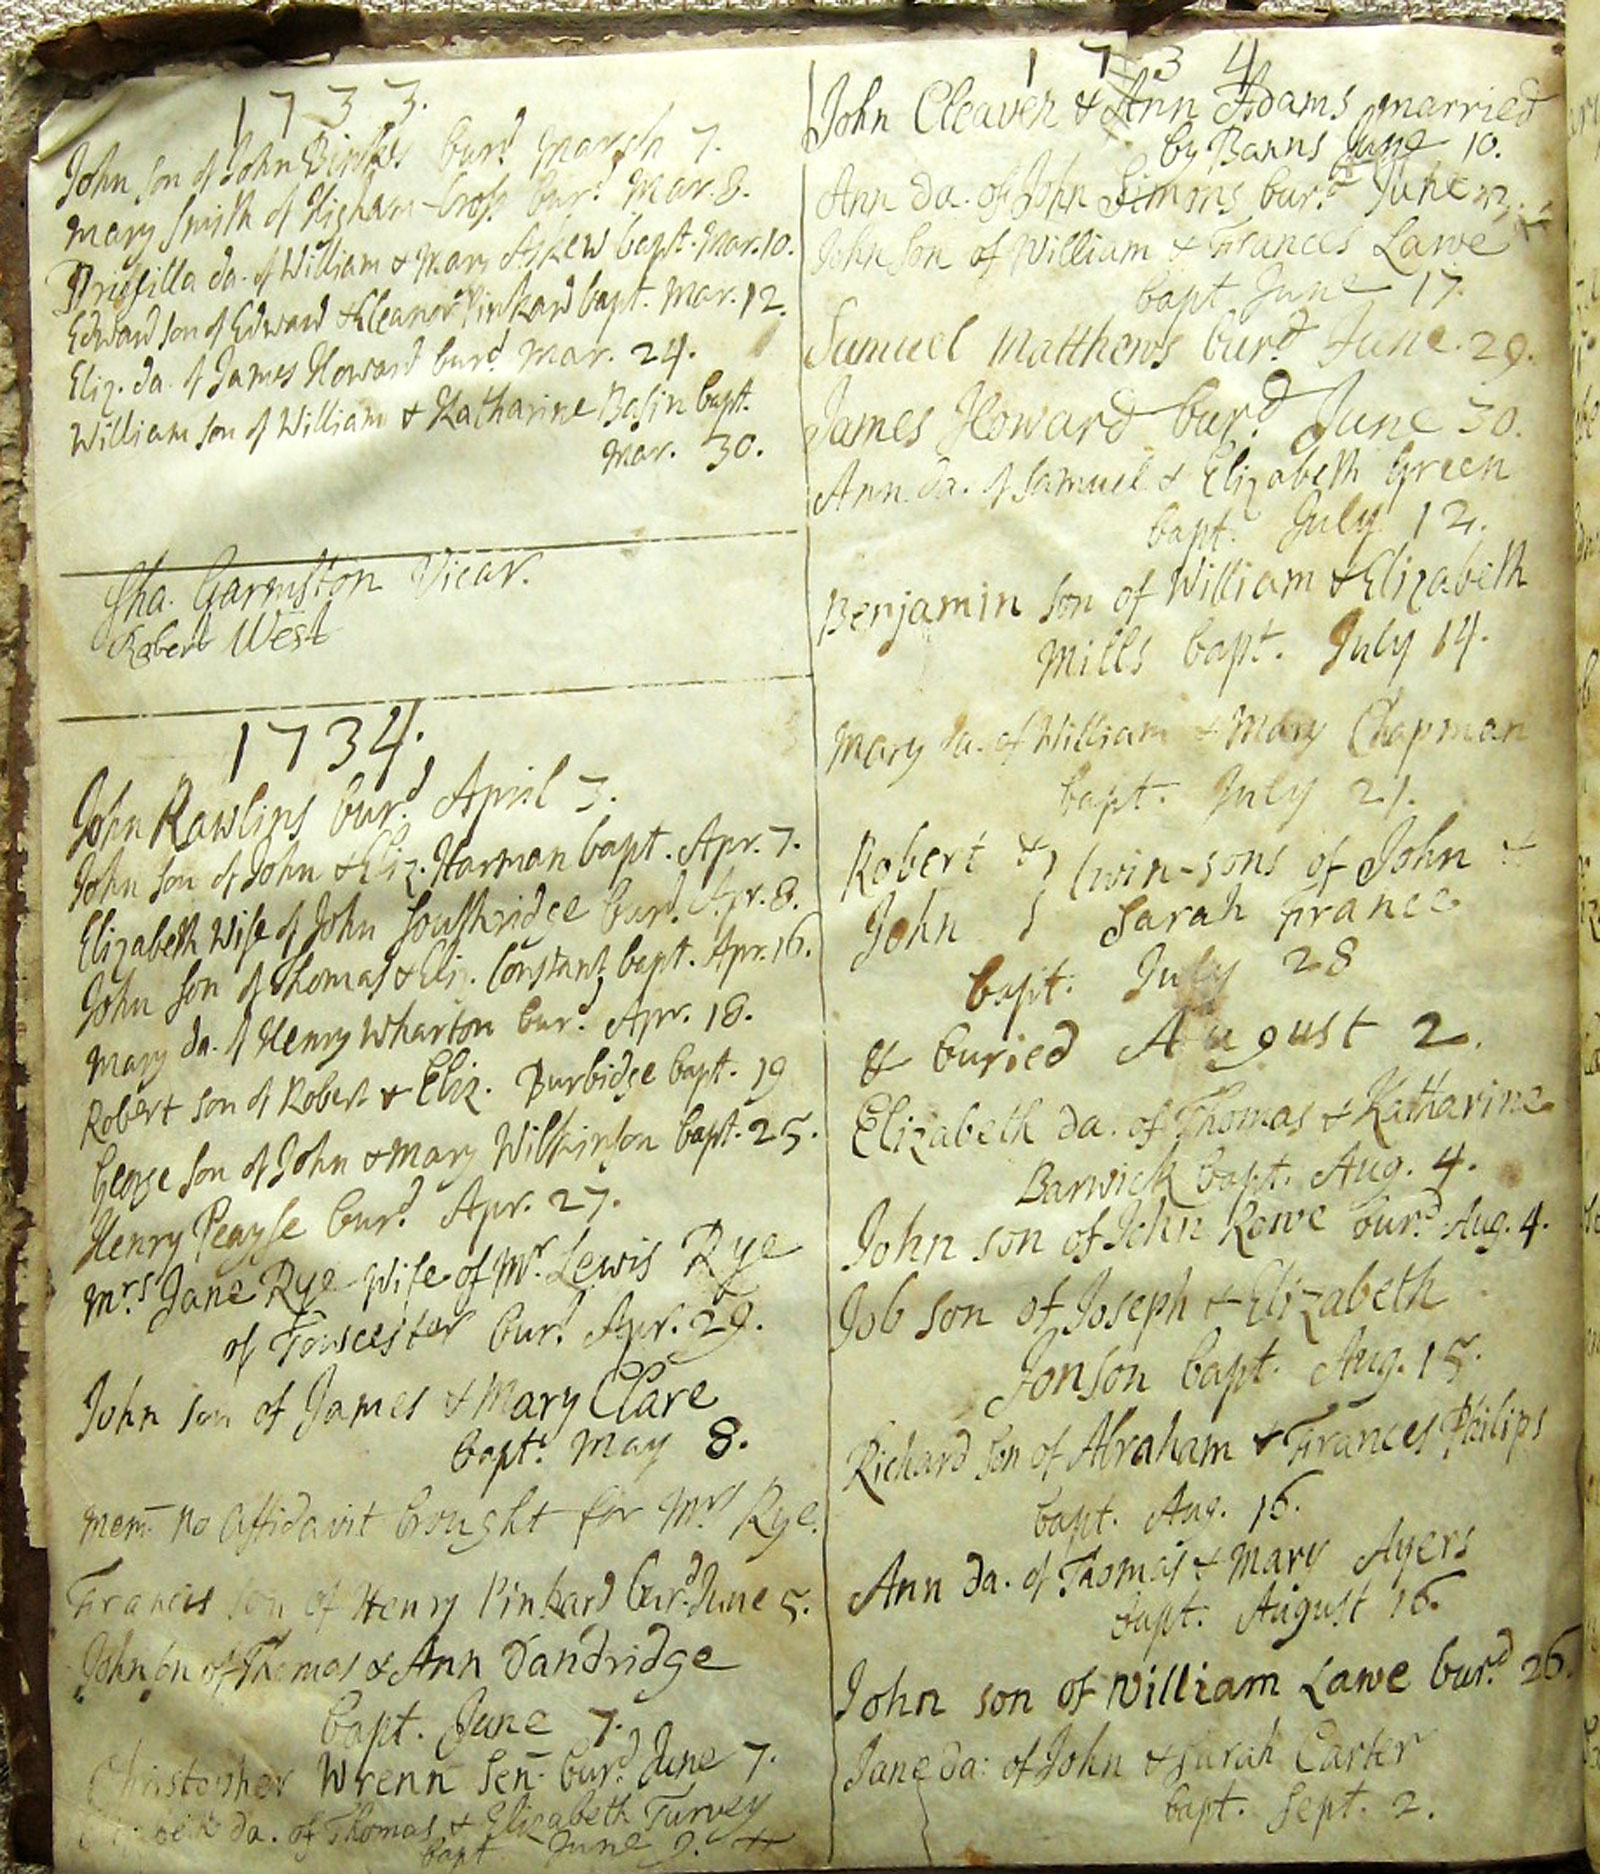 1733.
John son of John Binkes bur.d March 7.
Mary Smith of Higham-Cross bur.d Mar. 8.
Priscilla da. of William & Mary Askew bapt. Mar. 10.
Edward son of Edward & Eleanor Pinkard bapt. Mar. 12.
Eliz. da. of James Howard bur.d Mar. 24.
William son of William & Katharine Basin bapt.
Mar. 30.
Sha. Garmston Vicar.
Robert West
1734.
John Rawlins bur.d April 3.
John son of John & Eliz. Harman bapt. Apr. 7.
Elizabeth Wife of John Southridge bur.d Apr. 8.
John son of Thomas & Eliz. Constant bapt. Apr. 16.
Mary da. of Henry Wharton bur.d Apr. 18.
Robert son of Robert & Eliz. Burbidge bapt. 19
George son of John & Mary Wilkinson bapt. 25.
Henry Peayse bur.d Apr. 27.
Mrs. Jane Rye Wife of Mr. Lewis Rye
of Towcester bur.d Apr. 29.
John son of James & Mary Clare
bapt. May 8.
Mem. no Affidavit brought for Mrs Rye.
Francis son of Henry Pinkard bur.d June 5.
John son of Thomas & Ann Dandridge
bapt. June 7.
Christopher Wrenn Sen. bur.d June 7.
da. of Thomas & Elizabeth Turvey
bapt June 9.
1734
John Cleaver & Ann Adams married
by Banns June 10.
Ann da. of John Simms bur.d June
John son of William & Frances Lawe
bapt. June 17.
Samuel Matthews bur.d June. 29.
James Howard bur.d June 30.
Ann da. of Samuel & Elizabeth Green
bapt. July 12.
Benjamin son of William & Elizabeth
Mills bapt. July 14.
Mary da. of William & Mary Chapman
bapt. July 21.
Robert & } twin-sons of John &
John } Sarah France
bapt. July 28
& buried August 2.
Elizabeth da. of Thomas & Katharine
Barwick bapt. Aug. 4.
John son of John Rowe bur.d Aug. 4.
Job son of Joseph & Elizabeth
Jonson bapt. Aug. 15.
Richard son of Abraham & Frances Philips
bapt. Aug. 16.
Ann da. of Thomas & Mary Ayers
bapt. August 16.
John son of William Lawe bur.d 26.
Jane da: of John & Sarah Carter
bapt. Sept. 2.